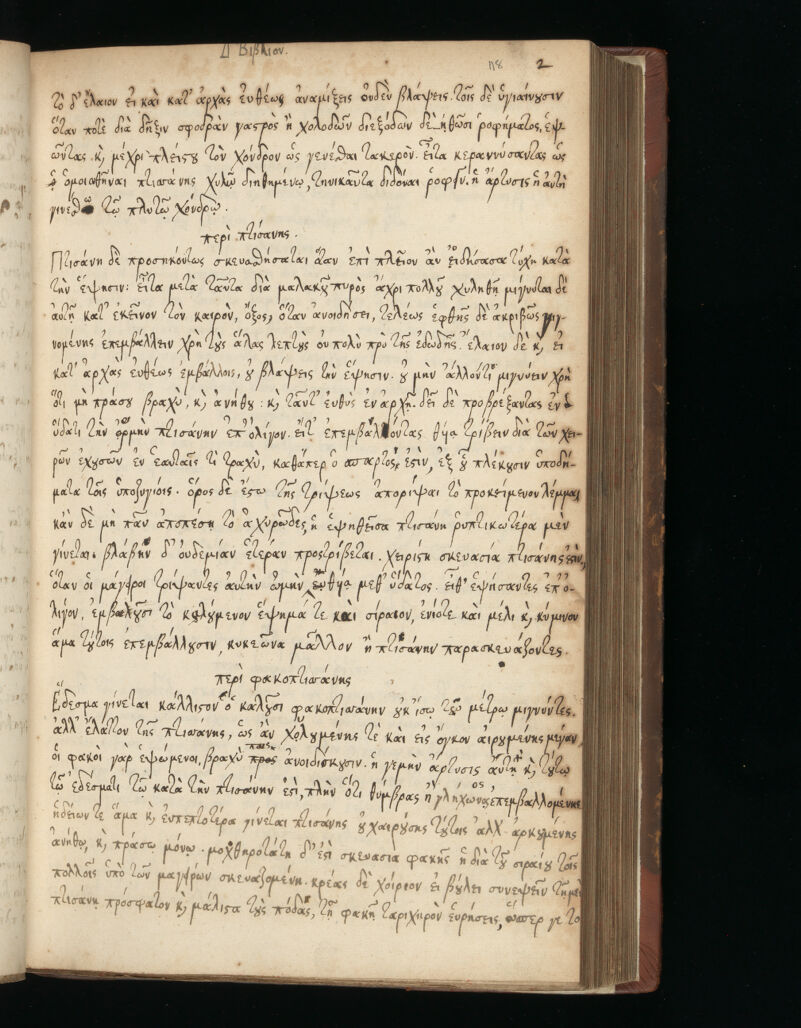 Δ Βιβλίον. 118 2
τὸ δ' ἔλαιον εἰ καὶ κατ' ἀρχὰς εὐθέως ἀναμίξεις οὐδὲν βλάψεις. τοῖς δὲ ὑγιαίνουσιν
ὅταν ποτὲ διὰ δῆξιν σφοδρὰν γαστρὸς ἢ χολοδῶν διεξόδων δεηθῶσι ροφήματος, ἑψ
ῶντας. κ, μέχρι πλείςου τὸν χόνδρον ὡς γενέσθαι τακερὸν. εἶτα κεραννύσαντας ὡς
ὁμοιωθῆναι πτισάνης χυλῷ διηθημένῳ, τηνικαῦτα διδόναι ῥοφεῖν. ἡ ἄρτυσις ἡ αὐτὴ
γινέσθω τῷ πλυτῷ χόνδρῳ.
περὶ πτισάνης.
Πτισάνη δὲ προσηκόντως σκευασθήσεται ὅταν ἐπὶ πλεῖον ἀν οἰδήσασα τύχη κατὰ
τὴν ἕψησιν: εἶτα μετὰ ταῦτα διὰ μαλακοῦ πυρὸς ἄχρι πολλοῦ χυληθῆ μίγνυται δὲ
αὐτῇ κατ' ἐκεῖνον τὸν καιρὸν, ὄξος, ὅταν ἀνοιδήσει, τελέως ἑφθῆς δὲ ἀκριβῶς γιγ-
νομένης ἐπεμβάλλειν χρὴ τοὺς ἅλας λεπτοὺς οὐ πολὺ πρὸ τῆς ἐδωδῆς. ἔλαιον δὲ κ, εἰ
κατ' ἀρχας εὐθέως ἐμβάλλοις, οὐ βλάψεις τὴν ἕψησιν. οὐ μὴν ἄλλοντι μιγνύειν χρὴ
ὅτι μὴ πράσου βραχὺ, κ, ἀνήθου: κ, ταῦτ' εὐθὺς ἐν ἀρχῇ. δεῖ δὲ προβρέξαντας ἐν
ὕδατι τὴν ὠμὴν πτισάνην ἐπ' ὀλίγον. εἶτ' ἐπεμβάλλοντας θυία τρίβειν διὰ τῶν χει-
ρῶν ἐχουσῶν ἐν ἑαυταῖς τι τραχὺ, καθάπερ ὁ σπάρτος ἐςὶν, ἐξ οὗ πλέκουσιν ὑποδή-
ματα τοῖς ὑποζυγίοις. ὅρος δὲ ἔςω τῆς τρίψεως ἀπορίψαι τὸ προκείμενον λέμμα,
κἂν δὲ μὴ πᾶν ἀποπέση τὸ ἀχυρῶδες, ἡ ἑψηθεῖσα πτισάνη ῥυπτικωτέρα μὲν
γίνεται. βλάβην δ' οὐδεμίαν ἑτέραν προςτρίβεται. χειρίςη σκευασία πτισάνης ἐςὶν,
ὅταν οἱ μάγειροι τρίψαντες αὐτὴν ὠμὴν ἐν θυία μεθ' ὕδατος. εἶθ' ἑψήσαντες ἐπ' ὀ-
λίγον, ἐμβαλοῦσι τὸ καλούμενον ἕψημά τε καὶ σίραιον, ἐνίοτε καὶ μέλι κ, κύμινον
ἅμα τούτοις ἐπεμβάλλουσιν, κυκεῶνα μᾶλλον ἢ πτισάνην παρασκευάζοντες.
περὶ φακοπτισάνης
Ἔδεσμα γίνεται κάλλιςον ὃ καλοῦσι φακοπτισάνην οὐκ ἴσῳ τῷ μέτρῳ μιγνύντες.
ἀλλ' ἔλαττον τῆς πτισάνης, ὡς ἂν χυλουμένης τὲ καὶ εἰς ὄγκον αἰρομένης μέγαν,
οἱ φακοὶ γὰρ ἑψώμενοι, βραχὺ ἀνοιδίσκουσιν. ἡ γεμὴν ἄρτυσις αὐτὴ κ, τούτω
τῷ ἐδέσματι τῷ κατὰ τὴν πτισάνην ἐςὶ, πλὴν ὅτι θύμβρας ἢ γλήχωνος ἐπεμβαλλομένης
ἡδίων τε ἅμα κ, εὐπεπτοτέρα γίνεται πτισάνης οὐ χαιρούσης τούτοις ἀλλ' ἀρκουμένης
ἀνήθῳ, κ, πράσῳ μόνῳ. μοχθηροτάτη δ' ἐςὶ σκευασία φακῆς ἡ διὰ τοῦ σιραίου τοῖς
πολλοῖς ὑπὸ τῶν μαγείρων σκευαζομένη. κρέας δὲ χοίρειον εἰ βούλει συνεψεῖν τῇ μὲν
πτισάνη πρόσφατον κ, μάλιςα τοὺς πόδας, τῇ φακῇ ταριχηρὸν εὑρήσεις, ὥσπερ γε το